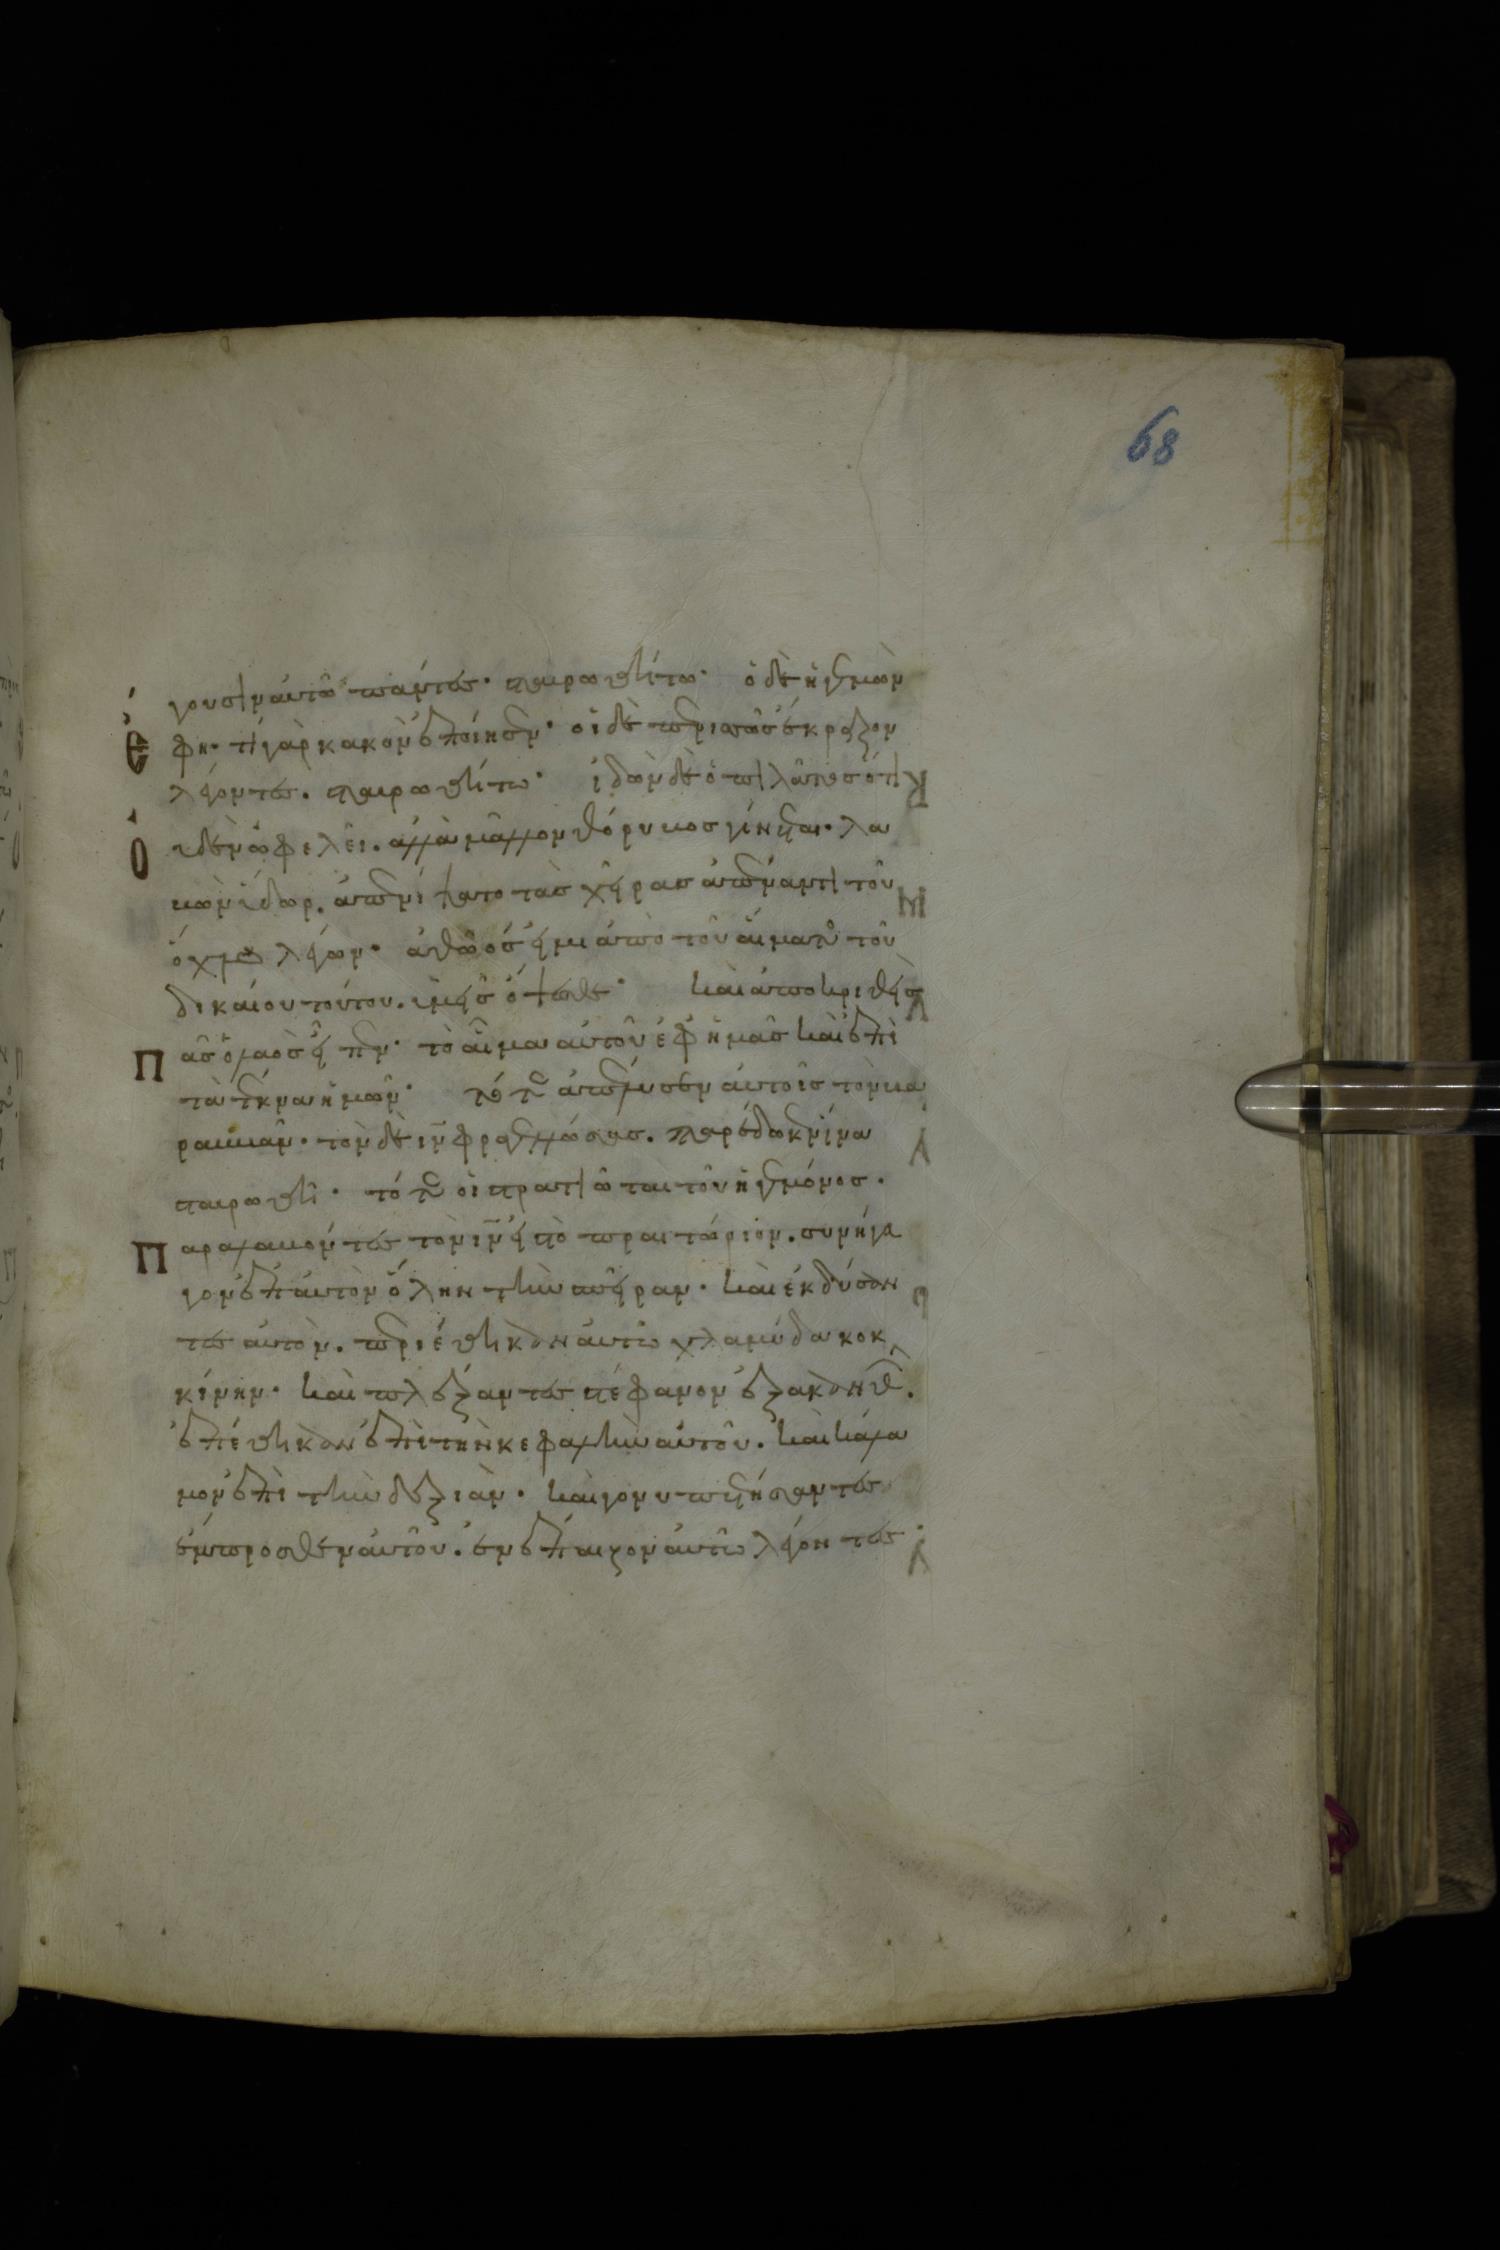 68
γουσιν αὐτῶ πάντες· σταυρωθήτω· ὁ δὲ ἡγεμὼν
ἔφη· τί γὰρ κακὸν ἐποίησεν· οἱ δὲ περισσῶς ἔκραζον
λέγοντες· σταυρωθήτω· ἰδὼν δὲ ὁ πιλᾶτος ὅτι
οὐδὲν ὠφελεῖ· ἀλλὰ μᾶλλον θόρυβος γίνεται· λα
βὼν ὕδωρ· ἀπενίψατο τὰς χεῖρας ἀπέναντι τοῦ
ὄχλου λέγων· ἀθῶός εἰμι ἀπὸ τοῦ αἵματος τοῦ
δικαίου τούτου· ὑμεῖς ὄψεσθε· καὶ ἀποκριθεὶς
πᾶς ὁ λαὸς εἶπεν· τὸ αἷμα αὐτοῦ ἐφ ἡμᾶς καὶ ἐπὶ
τὰ τέκνα ἡμῶν· τότε ἀπέλυσεν αὐτοῖς τὸν βα
ραββᾶν· τὸν δὲ ιν φραγελλώσας· παρέδωκεν ἵνα
σταυρωθῆ· τότε οἱ στρατιῶται τοῦ ἡγεμόνος·
Παραλαβόντες τὸν ιν εἰς τὸ πραιτώριον· συνήγα
γον ἐπ αὐτὸν ὅλην τὴν σπεῖραν· καὶ ἐκδύσαν
τες αὐτὸν· περιέθηκαν αὐτῶ χλαμύδα κοκ
κίνην· καὶ πλέξαντες στέφανον ἐξ ἀκανθῶν·
ἐπέθηκαν ἐπὶ τὴν κεφαλὴν αὐτοῦ· καὶ κάλα
μον ἐπὶ τὴν δεξιὰν· καὶ γονυπετήσαντες
ἔμπροσθεν αὐτοῦ· ἐνέπαιζον αὐτῶ λέγοντες